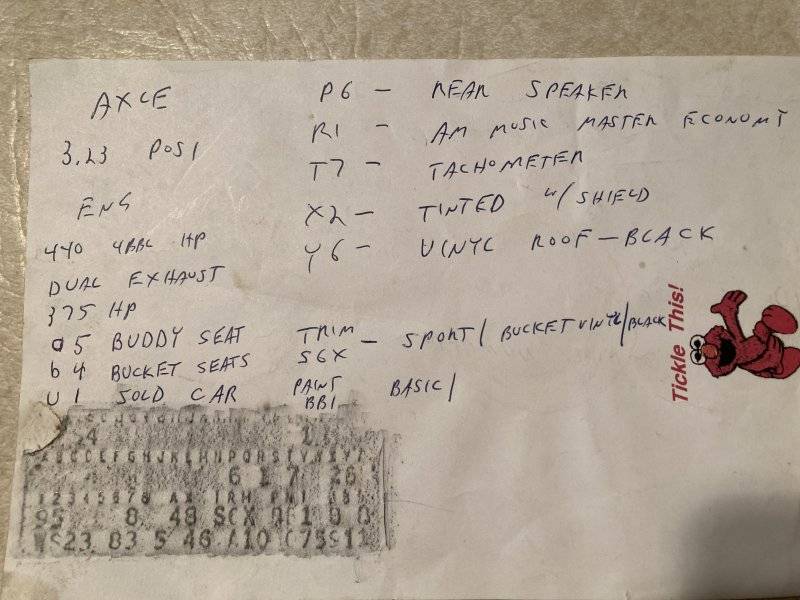 AXLE
3.23 POSI
ENG
440 4BBL HP
DUAL EXHAUST
375 HP
a5 BUDDY SEAT
b4 BUCKET SEATS
U1 SOLD CAR
P6 - REAR SPEAKER
R1 - AM MUSIC MASTER ECONOMY
T7 - TACHOMETER
X2 - TINTED W/SHIELD
Y6 - VINYL ROOF - BLACK
TRIM - SPORT / BUCKET VINYL/BLACK
S6X
PAINT BASIC/
BB1
Tickle This!
24 1
6 1 7 26
1 2 3 4 5 6 7 8 AX TRM
95 8 48
23 83 5 46